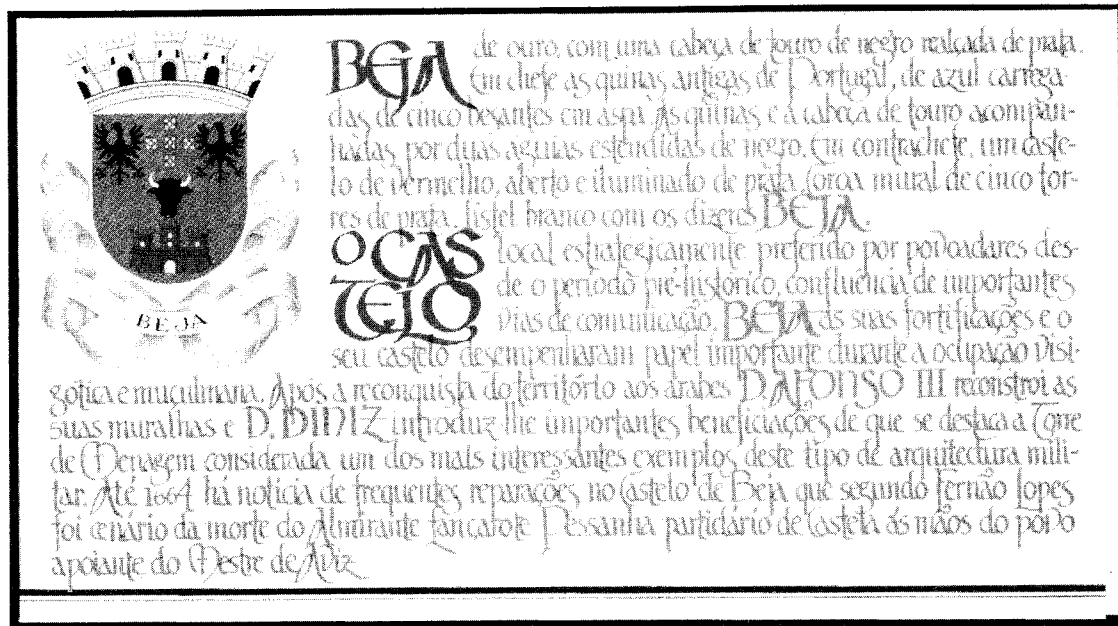 BEJA
BEJA de ouro, com uma cabeça de touro de negro realçada de prata.
Em chefe as quinas antigas de Portugal, de azul carrega-
das de cinco besantes em aspa. As quinas e a cabeça de touro acompan-
hadas por duas aguias estendidas de negro. Em contrachefe, um caste-
lo de vermelho, aberto e iluminado de prata. Coroa mural de cinco tor-
res de prata. Listel branco com os dizeres BEJA.
O CASTELO local estrategicamente preferido por povoadores des-
de o período pré-histórico, confluência de importantes
vias de comunicação. BEJA as suas fortificações e o
seu castelo desempenharam papel importante durante a ocupação visi-
gotica e muculmana. Após a reconquista do território aos árabes D. AFONSO III reconstroi as
suas muralhas e D. DINIZ introduz-lhe importantes beneficiações de que se destaca a Torre
de Menagem considerada um dos mais interessantes exemplos deste tipo de arquitectura mili-
tar. Até 1664 há noticia de frequentes reparações no Castelo de Beja que segundo Fernão Lopes
foi cenário da morte do Almirante Lançarote Pessanha partidário de Castela ás mãos do povo
apoiante do Mestre de Aviz